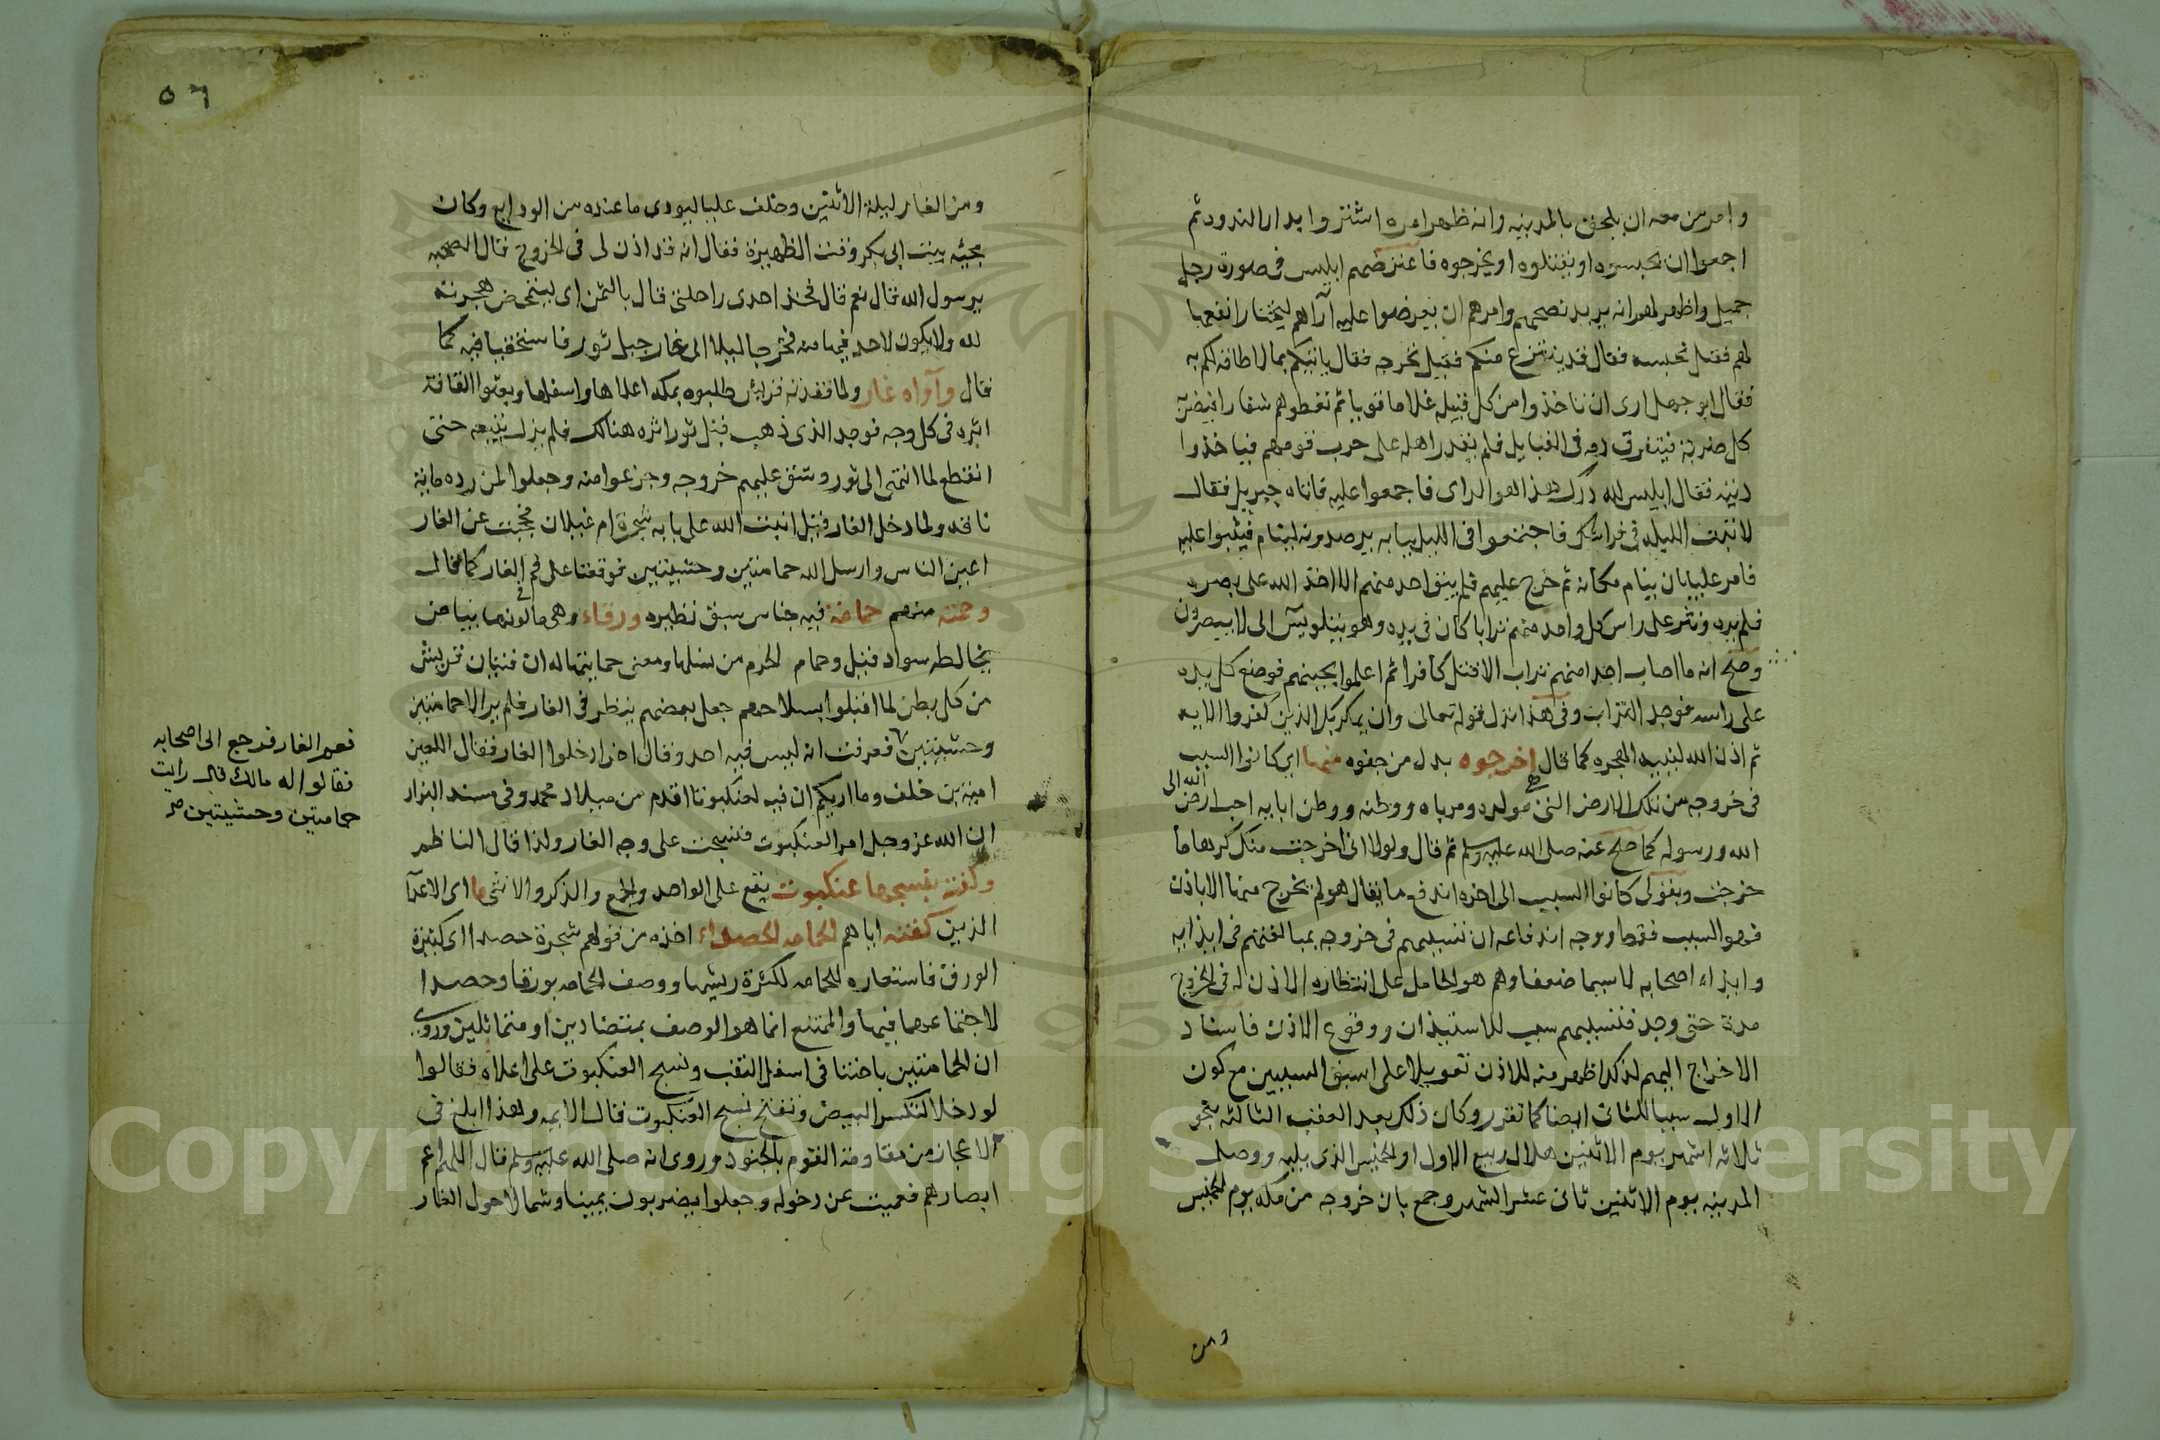 وامر من معه ان يلحق بالمدينه وانه ظهر امره اشتروا بدار الندوة ثم
اجمعوا ان يحبسوه او يقتلوه او يخرجوه فاعترضهم ابليس في صورة رجل
جميل واظهر لهم انه يريد نصحهم وامرهم ان يعرضوا عليه آراهم ليختار انفعها
لهم فقيل نحبسه فقال قد ينتزع منكم فقيل نخرجه فقال ياتيكم بما لا طاقة لكم به
فقال ابو جهل ارى ان تاخذوا من كل قبيله غلاما قويا ثم تعطوهم شفارا فيضربه
كل ضربة فيتفرق دمه في القبايل فلم يقدر اهله على حرب قومهم فياخذوا
ديته فقال ابليس لله درك هذا هو الراى فاجمعوا عليه فاتاه جبريل فقال
لا تبت الليله في فراشك فاجتمعوا في الليل ببابه يرصدونه لينام فيثبوا عليه
فامر عليا بان ينام مكانه ثم خرج عليهم فلم يبق احد منهم الا اخذ الله على بصره
فلم يره ونثر على راس كل واحد منهم ترابا كان في يده وهو يتلو يس الى لا يبصرون
وصح انه ما اصاب احدا منهم تراب الا قتل كافرا ثم اعلموا بخيبتهم فوضع كل يده
على راسه فوجد التراب وفي هذا نزل قوله تعالى وان يمكر بك الذين كفروا الايه
ثم اذن الله لنبيه الهجره كما قال اخرجوه بدل من جفوه منها اي كانوا السبب
في خروجه من تلك الارض التي هي مولده ومرباه ووطنه ووطن ابايه احب ارض الله الى
الله ورسوله كما صح عنه صلى الله عليه وسلم ثم قال ولولا اني اخرجت منك كرها ما
خرجت وبقولى كانوا السبب الى اخره اندفع ما يقال هو لم يخرج منها الا باذن
فهو السبب فقط ووجه اندفاعه ان تسببهم في خروجه بمبالغتهم في ايذايه
وايذاء اصحابه لا سيما ضعفاوهم هو الحامل على انتظاره الاذن له في الخروج
مدة حتى وجد فتسببهم سبب للاستيذان ووقوع الاذن فاسناد
الاخراج اليهم لذلك اظهر منه للاذن تعويلا على اسبق السببين مع كون
الاول سببا للثاني ايضا كما تقرر وكان ذلك بعد العقبه الثالثه بنحو
ثلاثه اشهر يوم الاثنين هلال ربيع الاول او الخميس الذي يليه ووصل
المدينه يوم الاثنين ثاني عشر الشهر وجمع بان خروجه من مكه يوم الخميس
ومن
٥٦
ومن الغار ليلة الاثنين وخلف عليا ليودي ما عنده من الودايع وكان
مجيئه بيت ابي بكر وقت الظهيرة فقال انه قد اذن لي في الخروج قال الصحبه
يرسول الله قال نعم قال فخذ احدى راحلتي قال بالثمن اى ليتمحض هجرته
لله ولا يكون لاحد فيها منه فخرجا ليلا الى غار جبل ثور فاستخفيا فيه كما
قال وآواه غار ولما فقدته قريش طلبوه بمكه اعلاها واسفلها وبعثوا القافة
اثره في كل وجه فوجد الذى ذهب قبل ثور اثره هنالك فلم يزل يتبعه حتى
انقطع لما انتهى الى ثور وشق عليهم خروجه وجزعوا منه وجعلوا لمن رده ماية
ناقه ولما دخل الغار قيل انبت الله على بابه شجرة ام غيلان فحجبت عن الغار
اعين الناس وارسل الله حمامتين وحشيتين فوقفتا على فم الغار كما قال
وحمته منهم حمامة فيه جناس سبق نظيره ورقاء وهي ما في لونها بياض
يخالطه سواد قيل وحمام الحرم من نسلها ومعنى حمايتها له ان فتيان قريش
من كل بطن لما اقبلوا بسلاحهم جعل بعضهم ينظر في الغار فلم ير الا حمامتين
وحشيتين فعرفت انه ليس فيه احد وقال اخر ادخلوا الغار فقال اللعين
امية بن خلف وما اربكم ان فيه لعنكبوتا اقدم من ميلاد محمد وفي مسند البزار
ان الله عز وجل امر العنكبوت فنسجت على وجه الغار ولذا قال الناظم
وكفته بنسجها عنكبوت يقع على الواحد والجمع والذكر والانثى ما اى الاعدآ
الذين كفته اياهم الحمامه الحصداء اخذه من قولهم شجرة حصدا اى كثيرة
الورق فاستعاره للحمامه لكثرة ريشها ووصف الحمامه بورقا وحصدا
لاجتماعهما فيها والممتنع انما هو الوصف بمتضادين او متماثلين وروى
ان الحمامتين باضتا في اسفل النقب ونسج العنكبوت على اعلاه فقالوا
لو دخلا لتكسر البيض وتفتح نسج العنكبوت قال الايمه وهذا ابلغ في
الاعجاز من مقاومة القوم بالجنود وروى انه صلى الله عليه وسلم قال اللهم اعم
ابصارهم فعميت عن دخوله وجعلوا يضربون يمينا وشمالا حول الغار
فعم الغار فرجع الى اصحابه
فقالوا له مالك قال رايت
حمامتين وحشيتين صح
Copyright © King Saud University